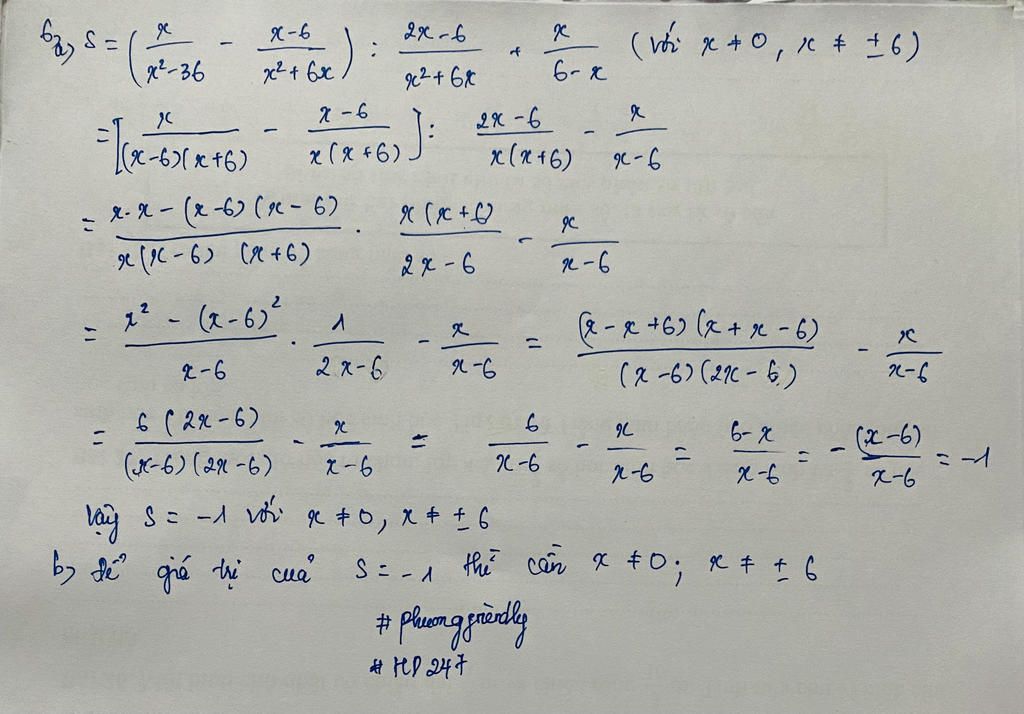 6, a) S = (x/(x²-36) - (x-6)/(x²+6x)) : (2x-6)/(x²+6x) + x/(6-x) (với x ≠ 0, x ≠ ± 6)
= [x/((x-6)(x+6)) - (x-6)/(x(x+6))] : (2x-6)/(x(x+6)) - x/(x-6)
= (x.x - (x-6)(x-6))/(x(x-6)(x+6)) . (x(x+6))/(2x-6) - x/(x-6)
= (x² - (x-6)²)/(x-6) . 1/(2x-6) - x/(x-6) = ((x-x+6)(x+x-6))/((x-6)(2x-6)) - x/(x-6)
= (6(2x-6))/((x-6)(2x-6)) - x/(x-6) = 6/(x-6) - x/(x-6) = (6-x)/(x-6) = -(x-6)/(x-6) = -1
Vậy S = -1 với x ≠ 0, x ≠ ± 6
b, để giá trị của S = -1 thì cần x ≠ 0; x ≠ ± 6
# HD 247